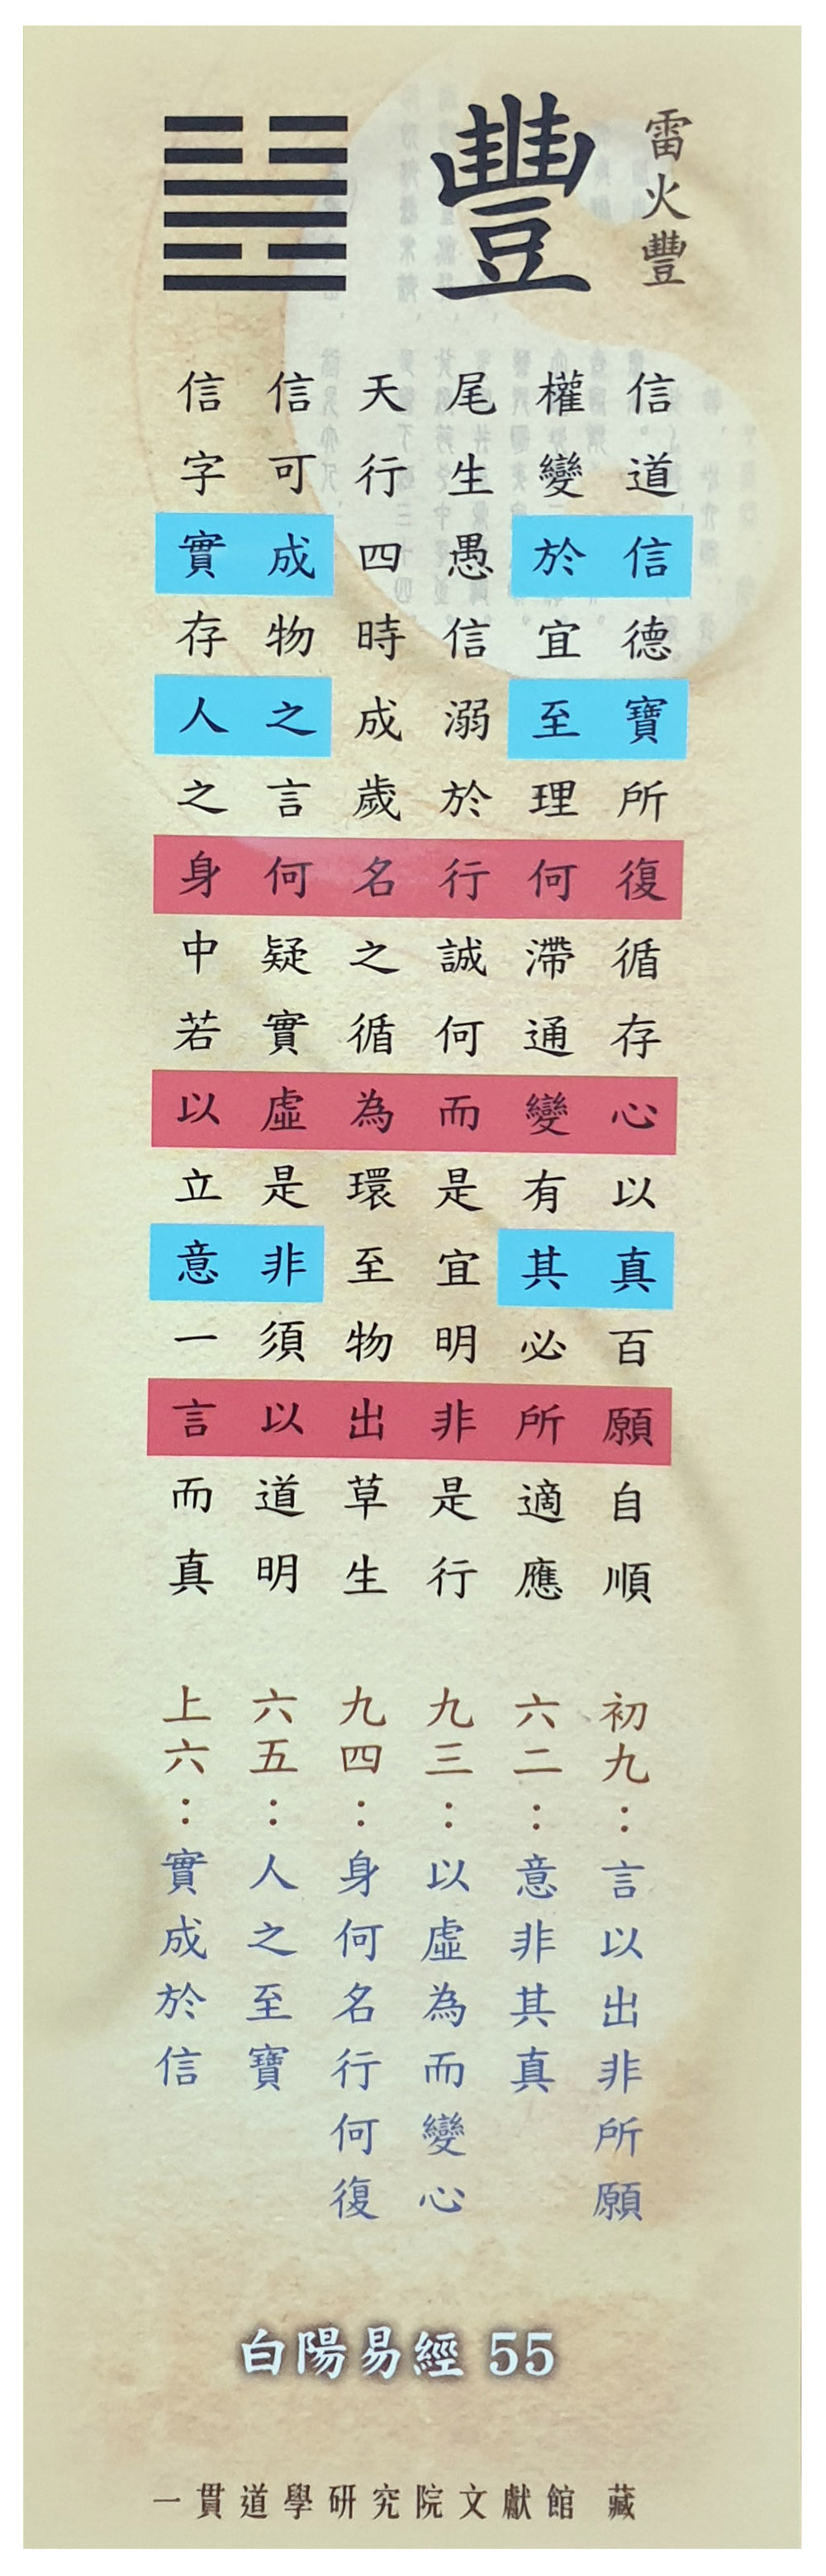 雷火豐
豐
信道信德寶所復循存心以真百願自順
權變於宜至理何滯通變有其必所適應
尾生愚信溺於行誠何而是宜明非是行
天行四時成歲名之循為環至物出草生
信可成物之言何疑實虛是非須以道明
信字實存人之身中若以立意一言而真
初九：言以出非所願
六二：意非其真
九三：以虛為而變心
九四：身何名行何復
六五：人之至寶
上六：實成於信
白陽易經 55
一貫道學研究院文獻館 藏